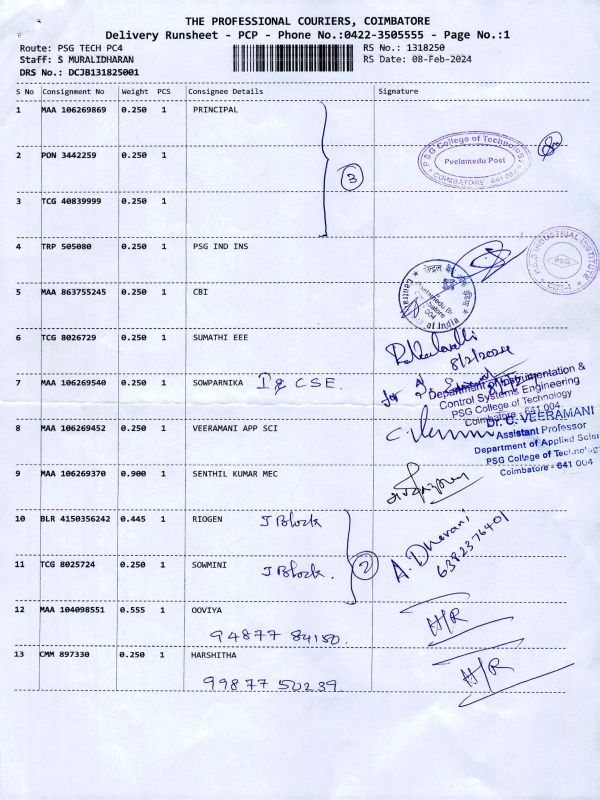 THE PROFESSIONAL COURIERS, COIMBATORE
Delivery Runsheet - PCP - Phone No.:0422-3505555 - Page No.:1
Route: PSG TECH PC4 RS No.: 1318250
Staff: S MURALIDHARAN RS Date: 08-Feb-2024
DRS No.: DCJB131825001
S No Consignment No Weight PCS Consignee Details Signature
1 MAA 106269869 0.250 1 PRINCIPAL
PSG College of Technology
Peelamedu Post
COIMBATORE - 641 004
2 PON 3442259 0.250 1
3
3 TCG 40839999 0.250 1
4 TRP 505080 0.250 1 PSG IND INS
P.S.G INDUSTRIAL INSTITUTE
PSG
5 MAA 863755245 0.250 1 CBI
सेन्ट्रल बैंक
Central
Peelamedu Br
Coimbatore
004
of India
6 TCG 8026729 0.250 1 SUMATHI EEE
8/2/2024
7 MAA 106269540 0.250 1 SOWPARNIKA I yr CSE.
for
Department of Instrumentation &
Control Systems Engineering
PSG College of Technology
Coimbatore - 641 004.
8 MAA 106269452 0.250 1 VEERAMANI APP SCI
Dr. C. VEERAMANI
Assistant Professor
Department of Applied Scien
PSG College of Technology
Coimbatore - 641 004
9 MAA 106269370 0.900 1 SENTHIL KUMAR MEC
10 BLR 4150356242 0.445 1 RIOGEN J Block
A. Dharani
6382376401
11 TCG 8025724 0.250 1 SOWMINI J Block.
2
12 MAA 104098551 0.555 1 OOVIYA
94877 84150.
H/R
13 CMM 897330 0.250 1 HARSHITHA
99877 50239
H/R